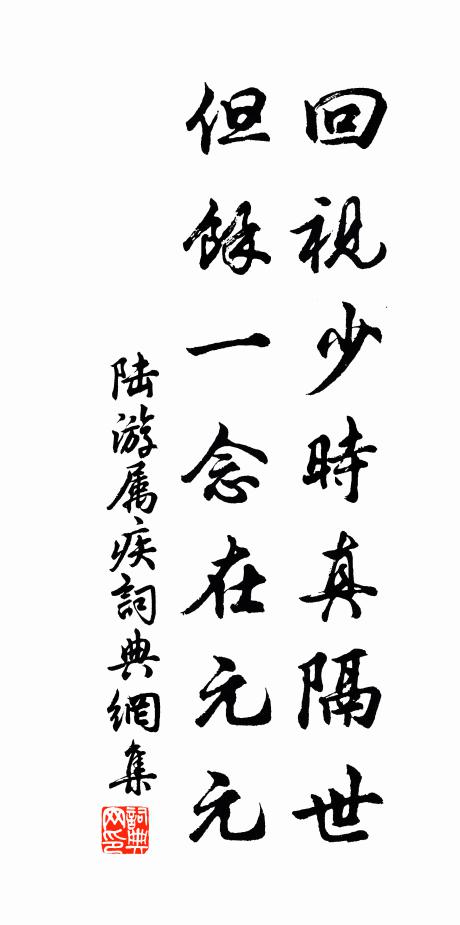 回視少時真隔世
但餘一念在元元
陸游属疾詞典網集
詞典网印